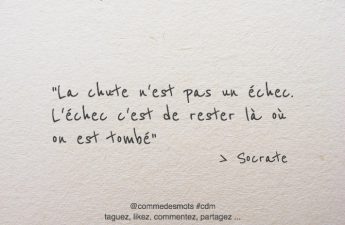 "La chute n'est pas un échec.
L'échec c'est de rester là où
on est tombé"
> Socrate
@commedesmots #cdm
taguez, likez, commentez, partagez ...